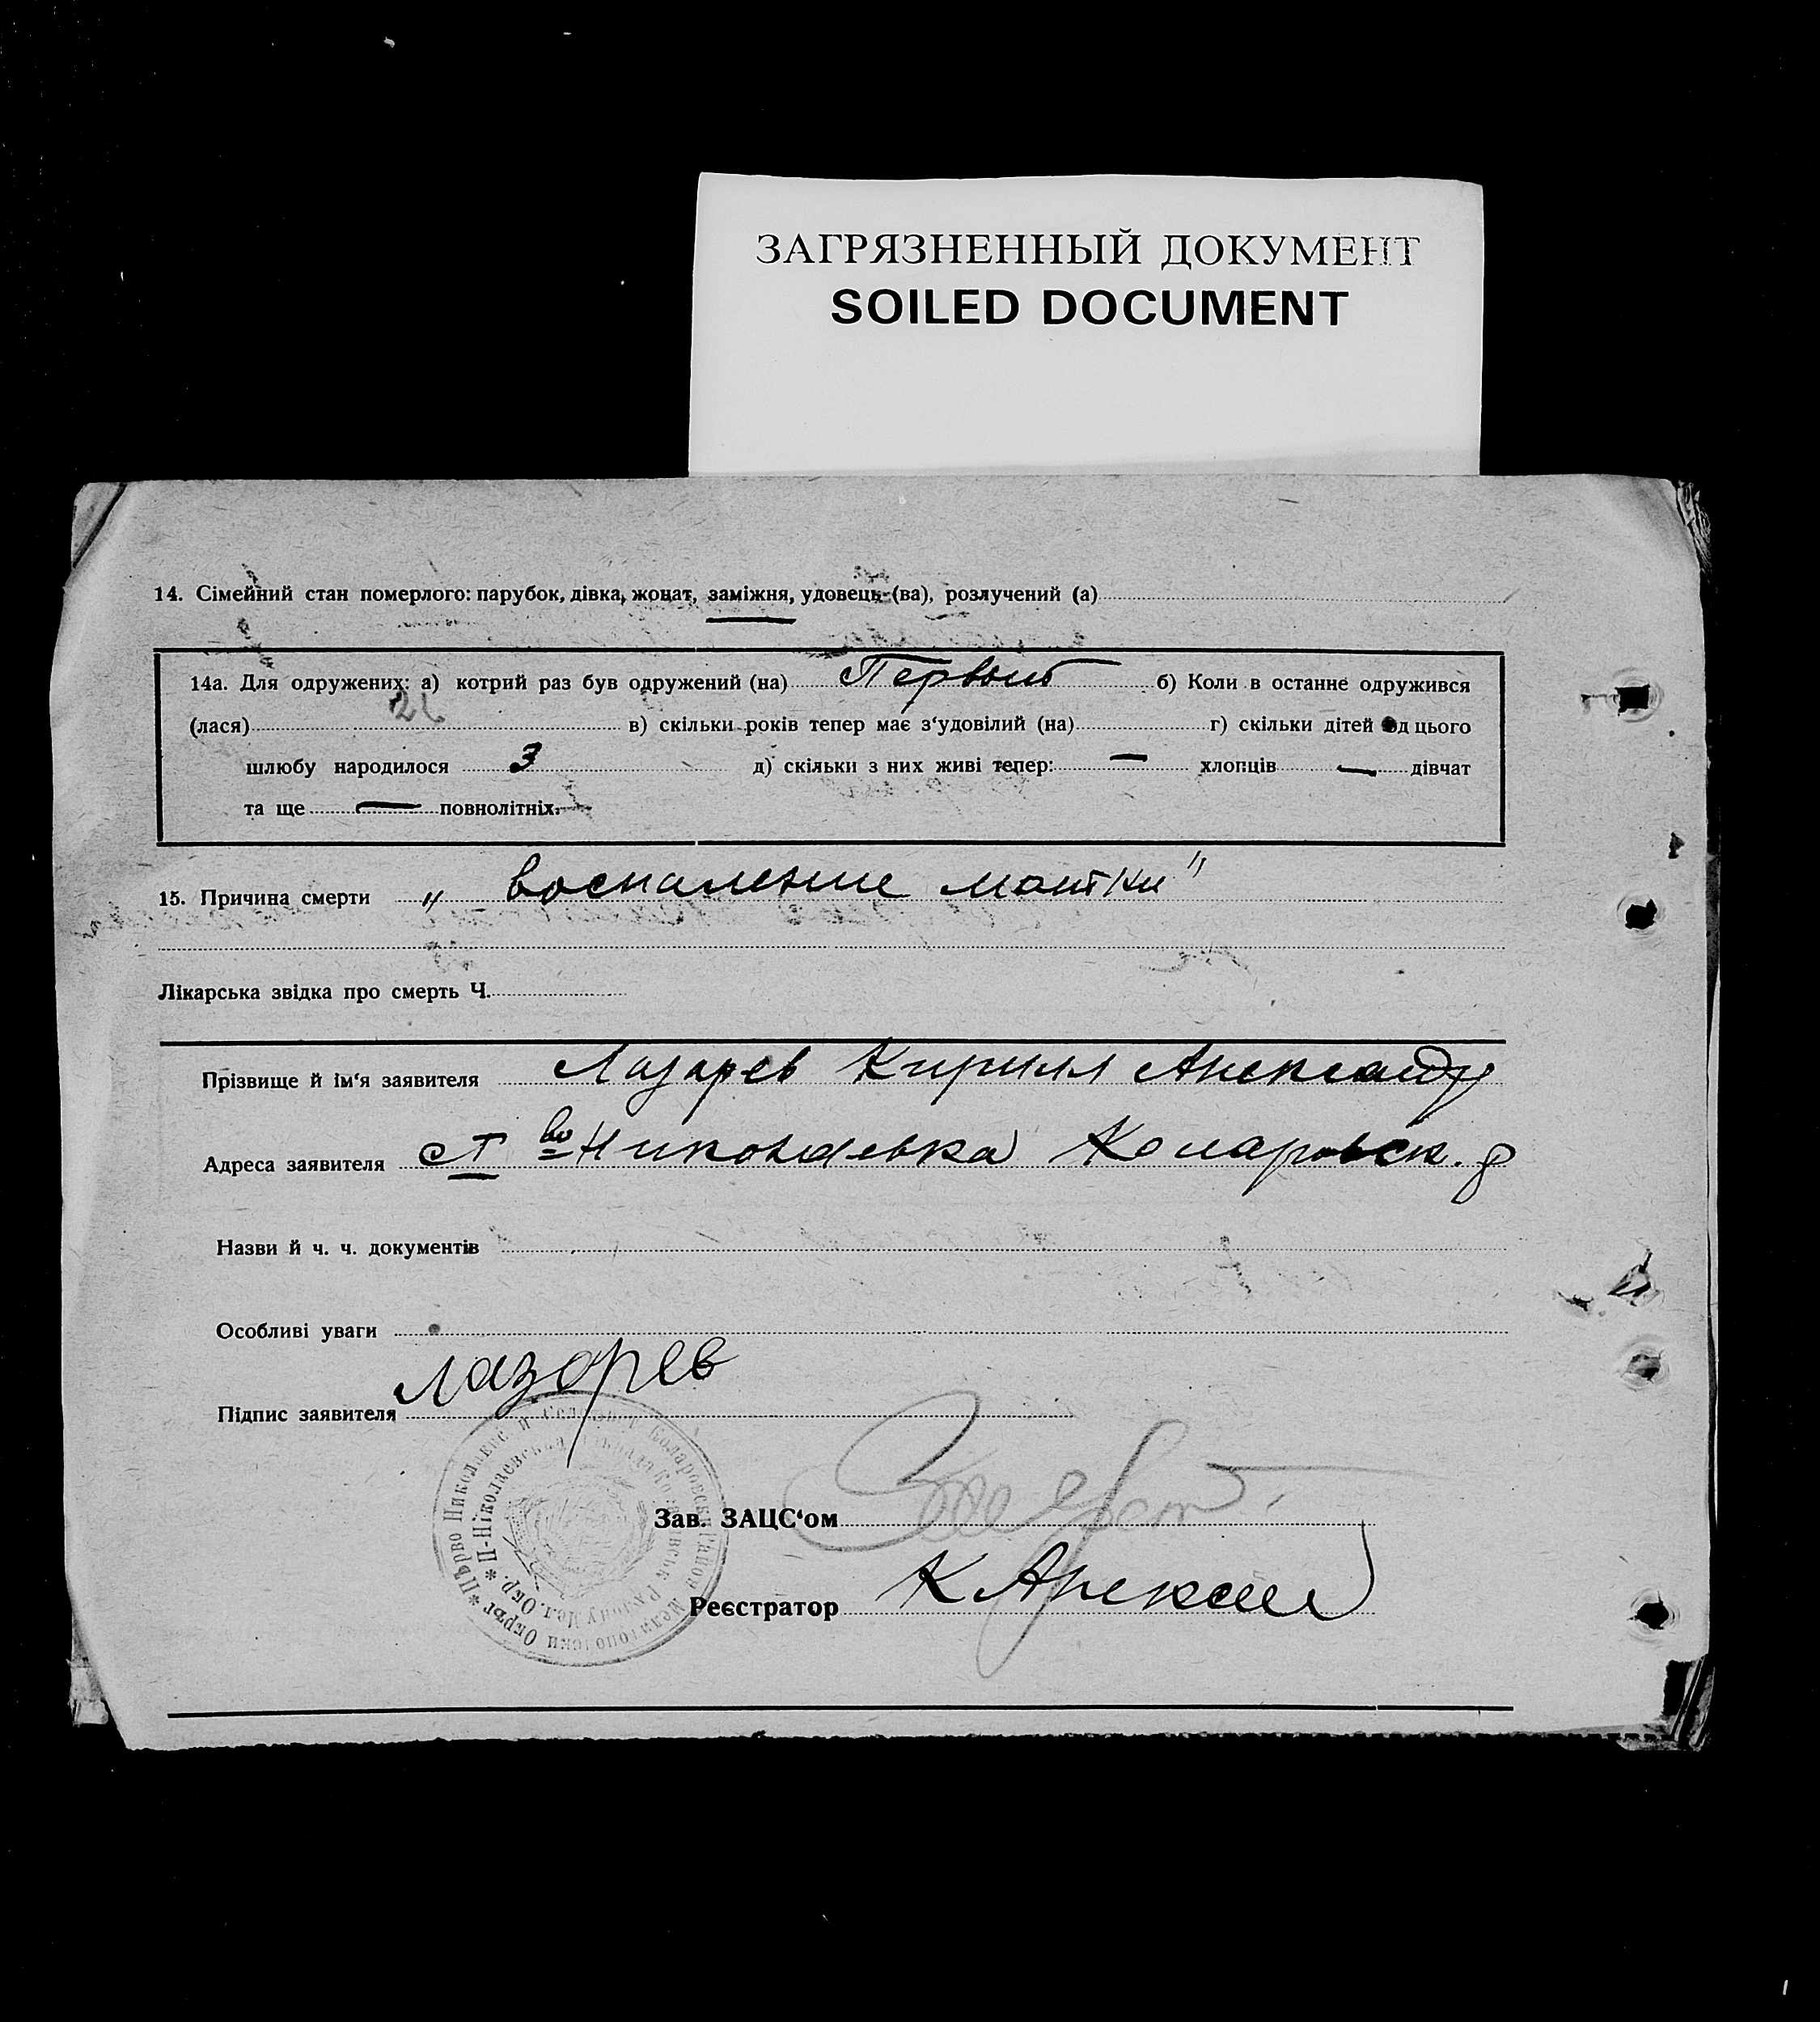 ЗАГРЯЗНЕННЫЙ ДОКУМЕНТ
SOILED DOCUMENT
14. Сімейний стан померлого: парубок, дівка, жонат, заміжня, удовець (ва), розлучений (а)
14а. Для одружених: а) котрий раз був одружений (на) Первый б) Коли в останнє одружився
(лася) в) скільки років тепер має з‘удовілий (на) г) скільки дітей од цього
шлюбу народилося 3 д) скільки з них живі тепер: — хлопців — дівчат
та ще — повнолітніх.
15. Причина смерти „ воспаление матки"
Лікарська звідка про смерть Ч.
Прізвище й ім‘я заявителя Лазарев Кирилл Александр
Адреса заявителя Николаевка Коларовск. р
Назви й ч. ч. документів
Особливі уваги
Підпис заявителя лазорев
Зав. ЗАЦС‘ом
Реєстратор